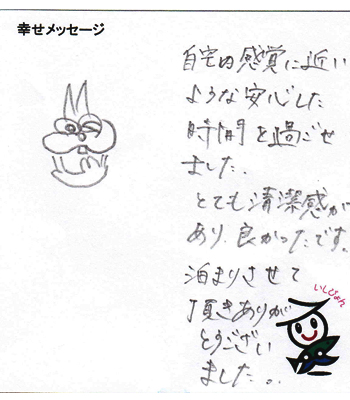 幸せメッセージ
自宅内感覚に近い
ような安心した
時間を過ごせ
ました.
とても清潔感が
あり、良かったです。
泊まりさせて
頂きありが
とうござい
ました。
いしぴょん